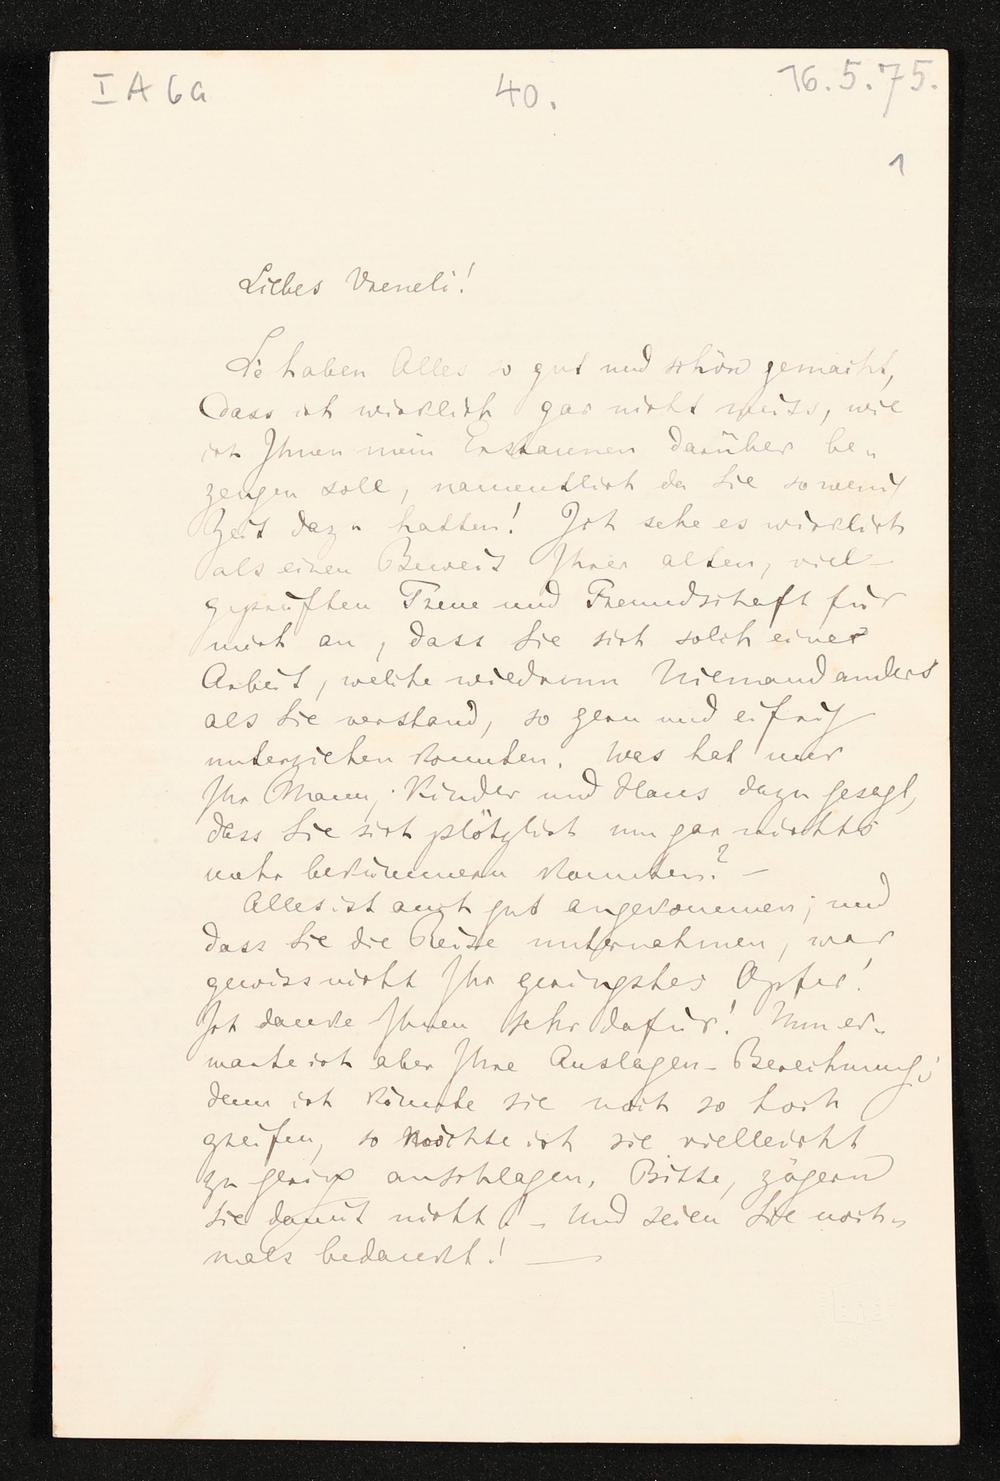 I A 6a
40.
16.5.75.
1
Liebes Vreneli!
Sie haben Alles so gut und schön gemacht,
dass ich wirklich gar nicht weiss, wie
ich Ihnen mein Erstaunen darüber be„
zeugen soll, namentlich da Sie so wenig
Zeit dazu hatten! Ich sehe es wirklich
als einen Beweis Ihrer alten, viel-
geprüften Treue und Freundschaft für
mich an, dass Sie sich solch einer
Arbeit, welche wiedrum Niemand anders
als Sie verstand, so gern und eifrig
unterziehen konnten. Was hat nur
Ihr Mann, Kinder und Haus dazu gesagt,
dass Sie sich plötzlich um gar nichts
mehr bekümmern konnten? —
Alles ist auch gut angekommen; und
dass Sie die Reise unternehmen, war
gewiss nicht Ihr geringstes Opfer!
Ich danke Ihnen sehr dafür! Nun er„
warte ich aber Ihre Auslagen-Berechnung;
denn ich könnte sie noch so hoch
greifen, so möchte ich sie vielleicht
zu gering anschlagen. Bitte, zögern
Sie damit nicht! — Und seien Sie noch„
mals bedankt! —